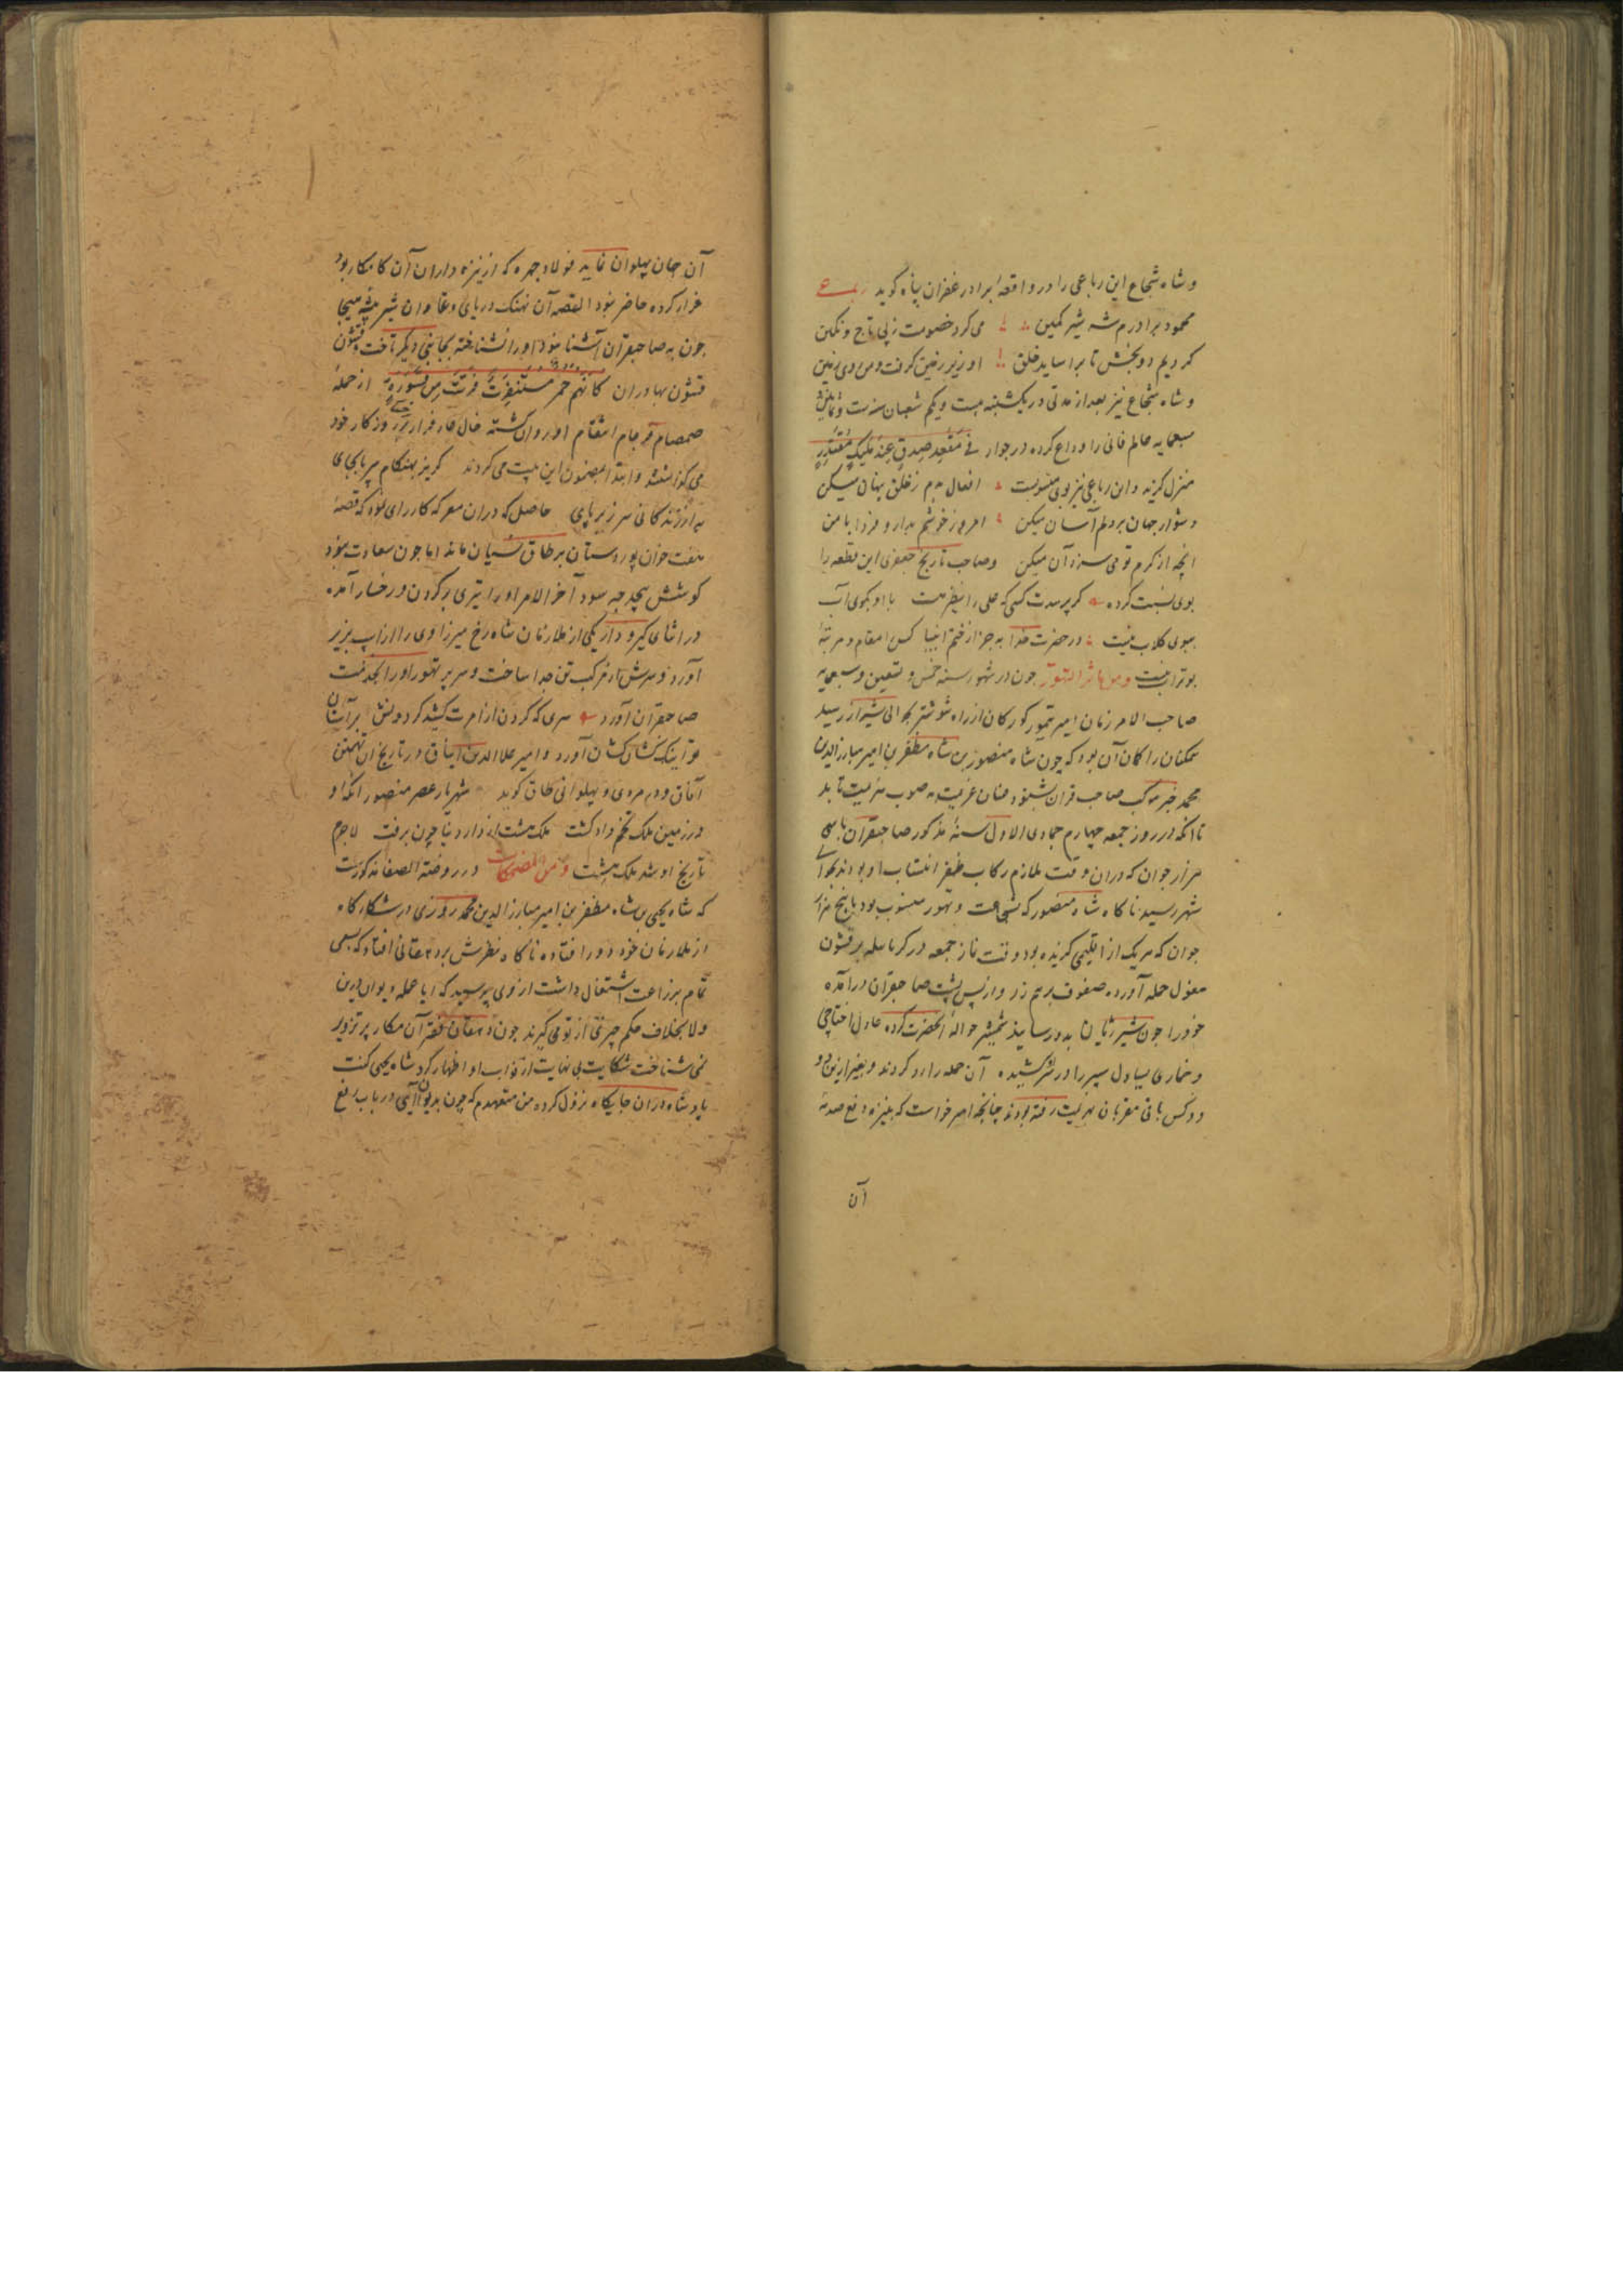 و شاه شجاع این رباعی را در واقعهٔ برادر غفران پناه کوید رباعی
محمود برادرم شه شیر کمین می کرد خصومت ز پی تاج و نکین
کردیم دو بخش تا براساید خلق او زیر زمین کرفت و من روی زمین
و شاه شجاع نیز بعد از مدتی در یکشنبه بیست و یکم شعبان سنه ست و ثمانین و
سبعمایه عالم فانی را وداع کرده در جوار فی مقعد صدق عند ملیک مقتدر
منزل کزید و این رباعی نیز بوی منسوبست افعال بدم ز خلق پنهان میکن
دشوار جهان بر دلم آسان میکن امروز خوشم بدار و فردا با من
انچه از کرم تو می سزد آن میکن و صاحب تاریخ جعفری این قطعه را
بوی نسبت کرده
ببوی کلاب نیست در حضرت خدا به جز از ختم انبیا کس را مقام و مرتبهٔ
بوتراب نیست و من مآثر التهور چون در شهور سنه خمس و تسعین و سبعمایه
صاحب الامر زمان امیر تیمور کورکان از راه شوشتر بحوالی شیراز رسید
همکنان را کمان آن بود که چون شاه منصور بن شاه مظفر بن امیر مبارز الدین
محمد خبر موکب صاحب قران شنود عنان عزیمت به صوب هزیمت تابد
تا انکه در روز جمعه چهارم جمادی الاول سنهٔ مذکور صاحبقران با سی
هزار جوان که در ان وقت ملازم رکاب ظفر انتساب او بودند بحوالی
شهر رسید ناکاه شاه منصور که بشجاعت و تهور منسوب بود با پنج هزار
جوان که هر یک از اقلیمی کزیده بود وقت نماز جمعه در کرباسله بر قشون
مغول حمله آورده صفوف برهم زد و از پس پشت صاحبقران درآمده
خود را چون شیر ژیان بدو رسانید شمشیر حوالهٔ آنحضرت کرده عادل اختاچی
و خماری یساول سپر را در سر کشیده آن حمله را رد کردند و بغیر ازین دو
دو کس باقی مقربان هزیمت رفته بودند چنانچه امیر خواست که بنیزه دفع صدمهٔ
آن
آن جهان پهلوان نماید فولاد چهره که از نیزه داران آن کامکار بود
فرار کرده حاضر نبود القصه آن نهنک دریای وغا و ان شیر بیشه هیجا
چون به صاحبقران آشنا نبود او را نشناخته بجانبی دیکر تاخت و قشون
قشون بهادران کانهم حمر مستنفرة فرت من قسورة از حملهٔ
صمصام او روان کشته خاک عار فرار بر روزکار خود
می کذاشتند و ابتدا بمضمون این بیت می کردند کریز بهنکام سر با بجای
به از زندکانی سر زیر پای حاصل که در ان معرکه کارزاری نمود که قصهٔ
هفت خوان پور دستان بر طاق نسیان ماند اما چون سعادت نبود
کوشش بیحد چه سود آخر الامر او را تیری بر کردن و رخسار آمده
در اثنای کیر و دار یکی از ملازمان شاهرخ میرزا وی را از اسپ بزیر
آورد و سرش از مرکب تن جدا ساخت و سر پر تهور او را بخدمت
صاحبقران آورد سری که کردن از امرت کشد کردونش بر آستان
تو اینک کشان کشان آورد و امیر علاالدین ایناق در تاریخ ان تهمتن
آفاق و در مردی و پهلوانی طاق کوید شهریار عصر منصور انکه او
در زمین ملک تخم داد کشت ملک هشت از دار دنیا چون برفت لاجرم
تاریخ او شد ملک بهشت و من المضحکات در روضة الصفا مذکورست
که شاه یحیی بن شاه مظفر بن امیر مبارز الدین محمد روزی در شکارکاه
از ملازمان خود دور افتاده ناکاه نظرش بر دهقانی افتاد که بسعی
تمام بزراعت اشتغال داشت از وی پرسید که ایا عمله دیوان درین
ولا بخلاف حکم چیزی از تو می کیرند چون دهقان فقیر آن مکار پر تزویر
نمی شناخت شکایت بی نهایت از نواب او اظهار کرد شاه یحیی کفت
پادشاه در ان جایکاه نزول کرده من متعهدم که چون بدیوان آیی در باب رفع